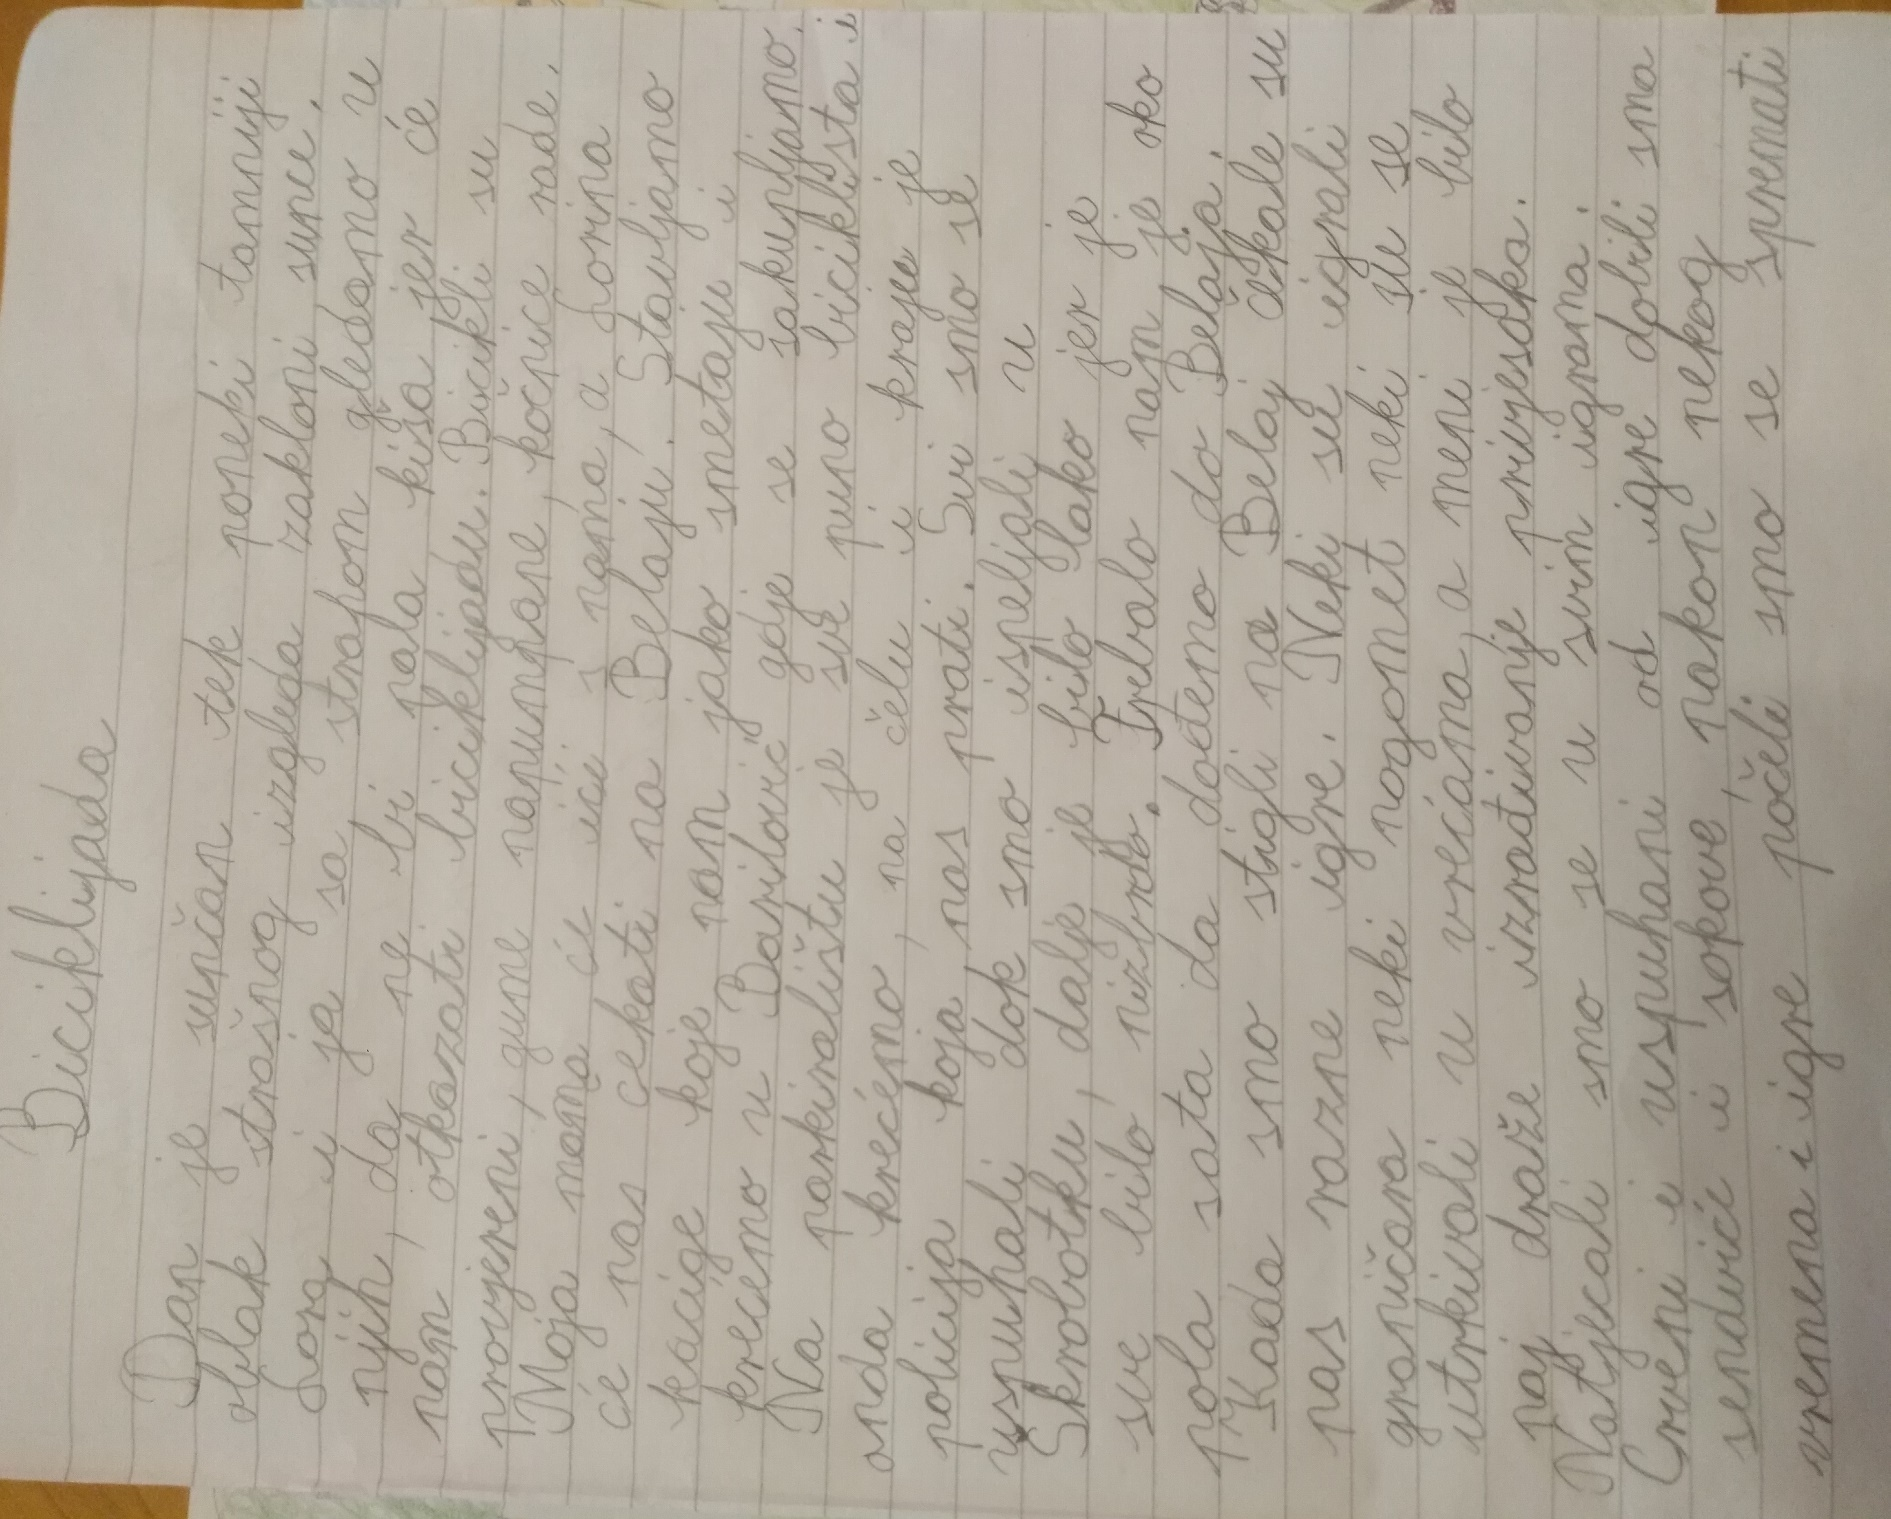 Biciklijada
Dan je sunčan tek poneki tamniji
oblak strašnog izgleda zakloni sunce.
Lora i ja sa strahom gledamo u
njih, da ne bi pala kiša jer će
nam otkazati biciklijadu. Bicikli su
provjereni, gume napumpane, kočnice rade.
Moja mama će ići s nama, a Lorina
će nas čekati na Belaju. Stavljamo
kacige koje nam jako smetaju i
krećemo u Barilović gdje se sakupljamo.
Na parkiralištu je sve puno biciklista i
onda krećemo, na čelu i kraju je
policija koja nas prati. Svi smo se
uspuhali dok smo ispeljali u
Skrobotku, dalje je bilo lako jer je
sve bilo nizbrdo. Trebalo nam je oko
pola sata da dođemo do Belaja.
Kada smo stigli na Belaj čekale su
nas razne igre. Neki su igrali
graničara neki nogomet neki su se
utrkivali u vrećama, a meni je bilo
naj draže izrađivanje privjeska.
Natjecali smo se u svim igrama.
Crveni i uspuhani od igre dobili smo
sendviće i sokove, nakon nekog
vremena i igre počeli smo se spremati